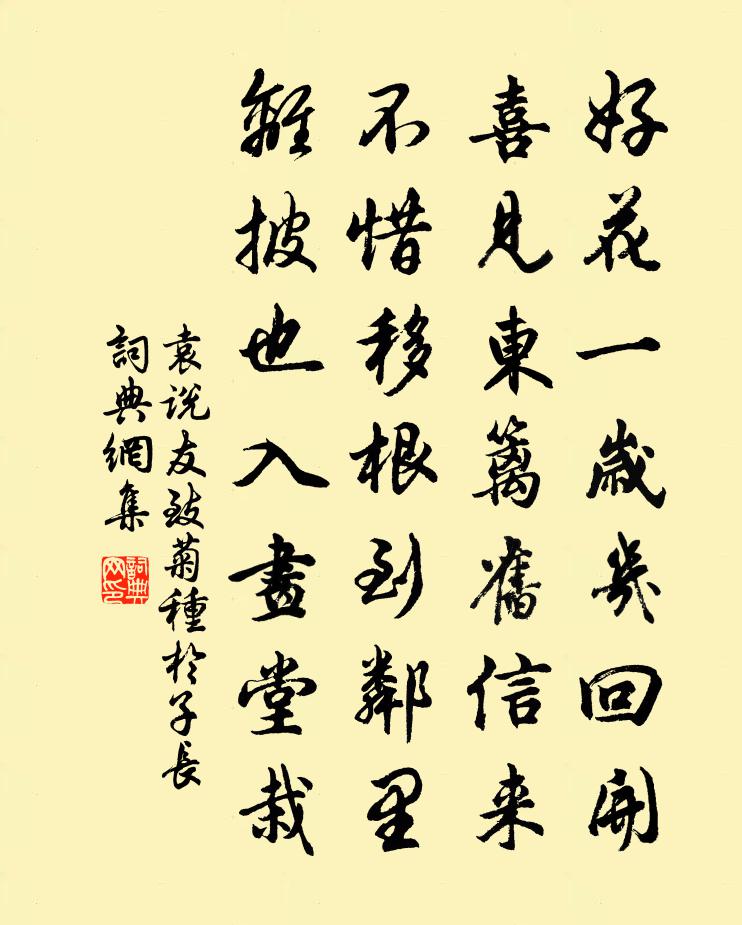 好花一歲幾回開
喜見東籬舊信来
不惜移根到鄰里
離披也入畫堂栽
袁说友致菊種於子長
詞典網集
詞典
网印